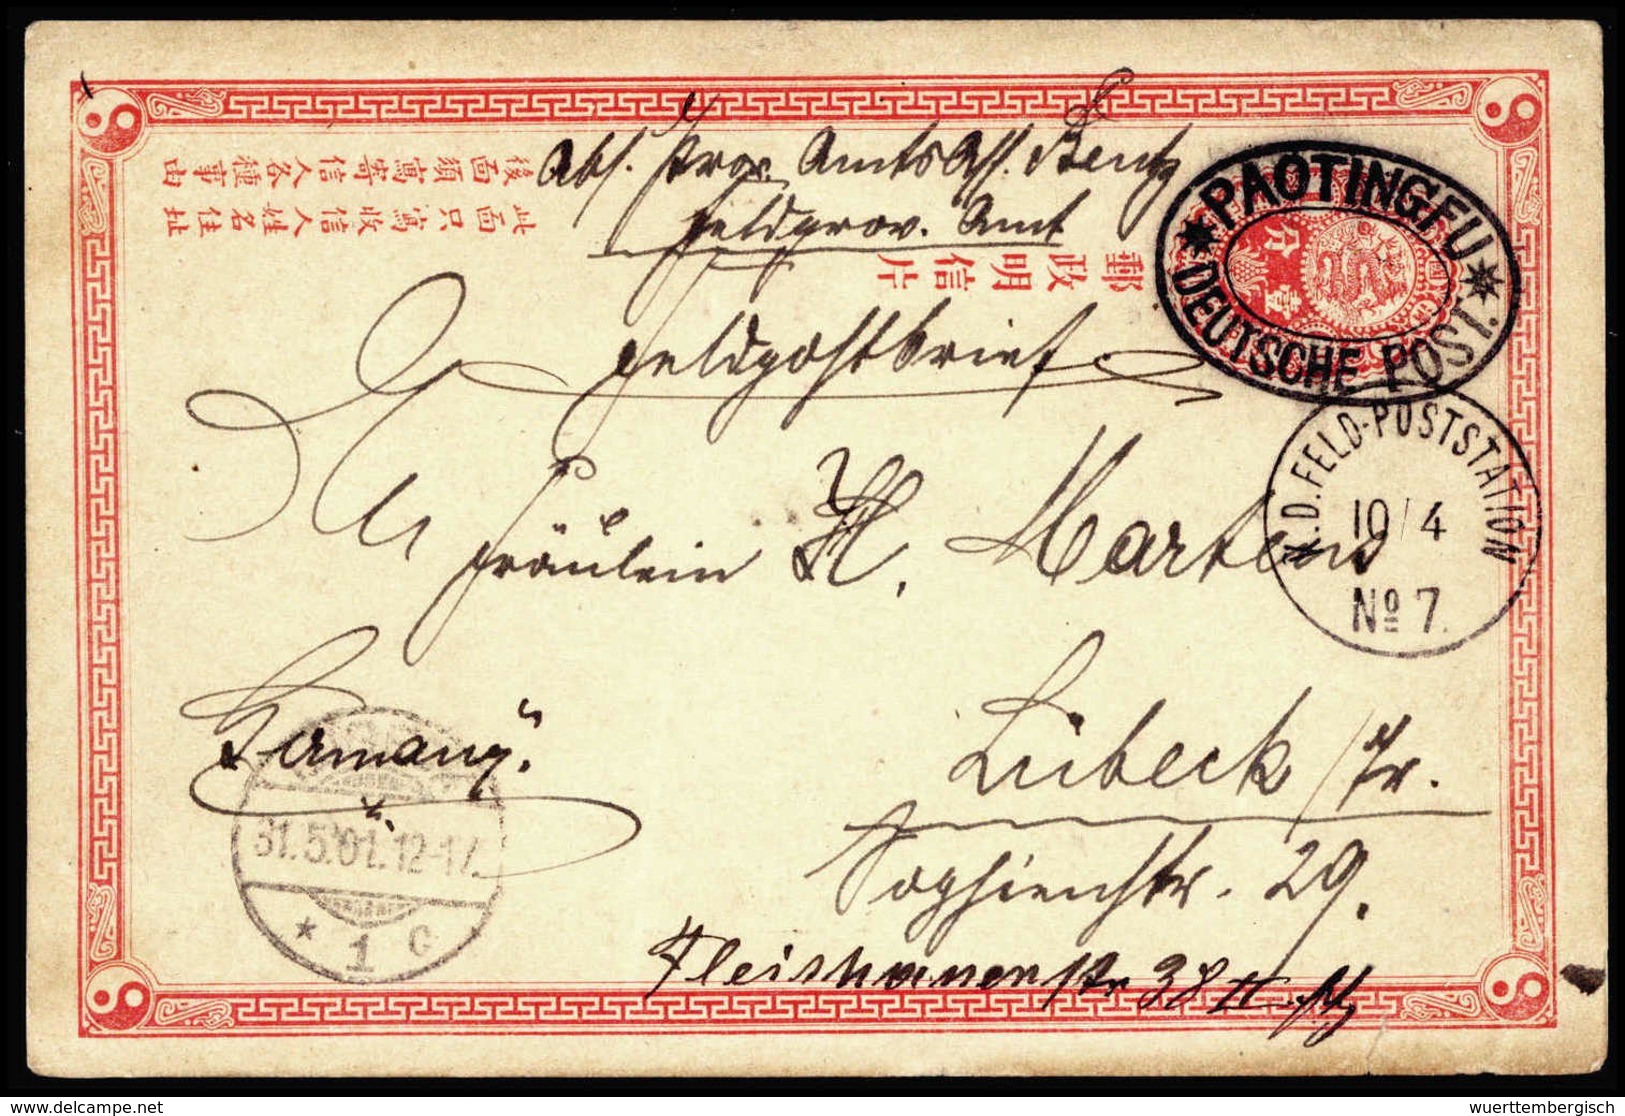 Abs. Prov. Amts Ass. Bentz
Feldprov. Amt
後面須寫寄信人各種事由
此面只寫收信人姓名住址
郵政明信片
壹分
* PAOTINGFU *
DEUTSCHE POST.
Feldpostbrief
K.D. FELD-POSTSTATION
10/4
No 7.
An
Fräulein H. Martens
Germany.
Lübeck
31.5.01.12-1
* 1 C
Sophienstr. 29.
38 II
delcampe.net
wuerttembergisch